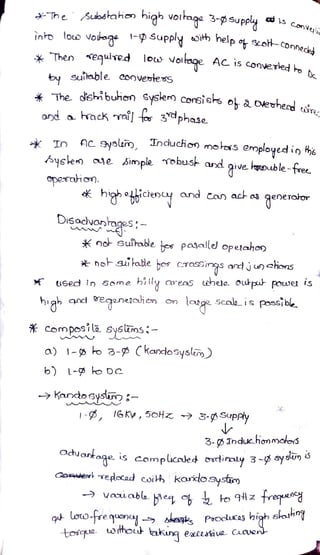 * The Substation high voltage 3-φ supply is
into low voltage 1-φ supply with help of Scott-Connected
* Then required low voltage AC is converted to Dc
by suitable converters
* The distribution System consists of 2 overhead wires
and a track rail for 3rd phase.
* In AC System, Induction motors employed in this
System are Simple robust and give trouble-free
operation.
* high efficiency and can act as generator
Disadvantages:-
* not suitable for parallel operation
* not suitable for crossings and junctions
* used in some hilly areas where output power is
high and Regeneration on large scale is possible.
* composite systems:-
a) 1-φ to 3-φ (kandosystem)
b) 1-φ to DC
→ Kandosystem:-
1-φ, 16KV, 50Hz → 3-φ Supply
↓
3-φ Inductionmotors
advantage is complicated ordinary 3-φ system is
replaced with kandosystem
→ variable freq of ½ to 9Hz frequency
at low-frequency → Produces high starting
torque without taking excessive current